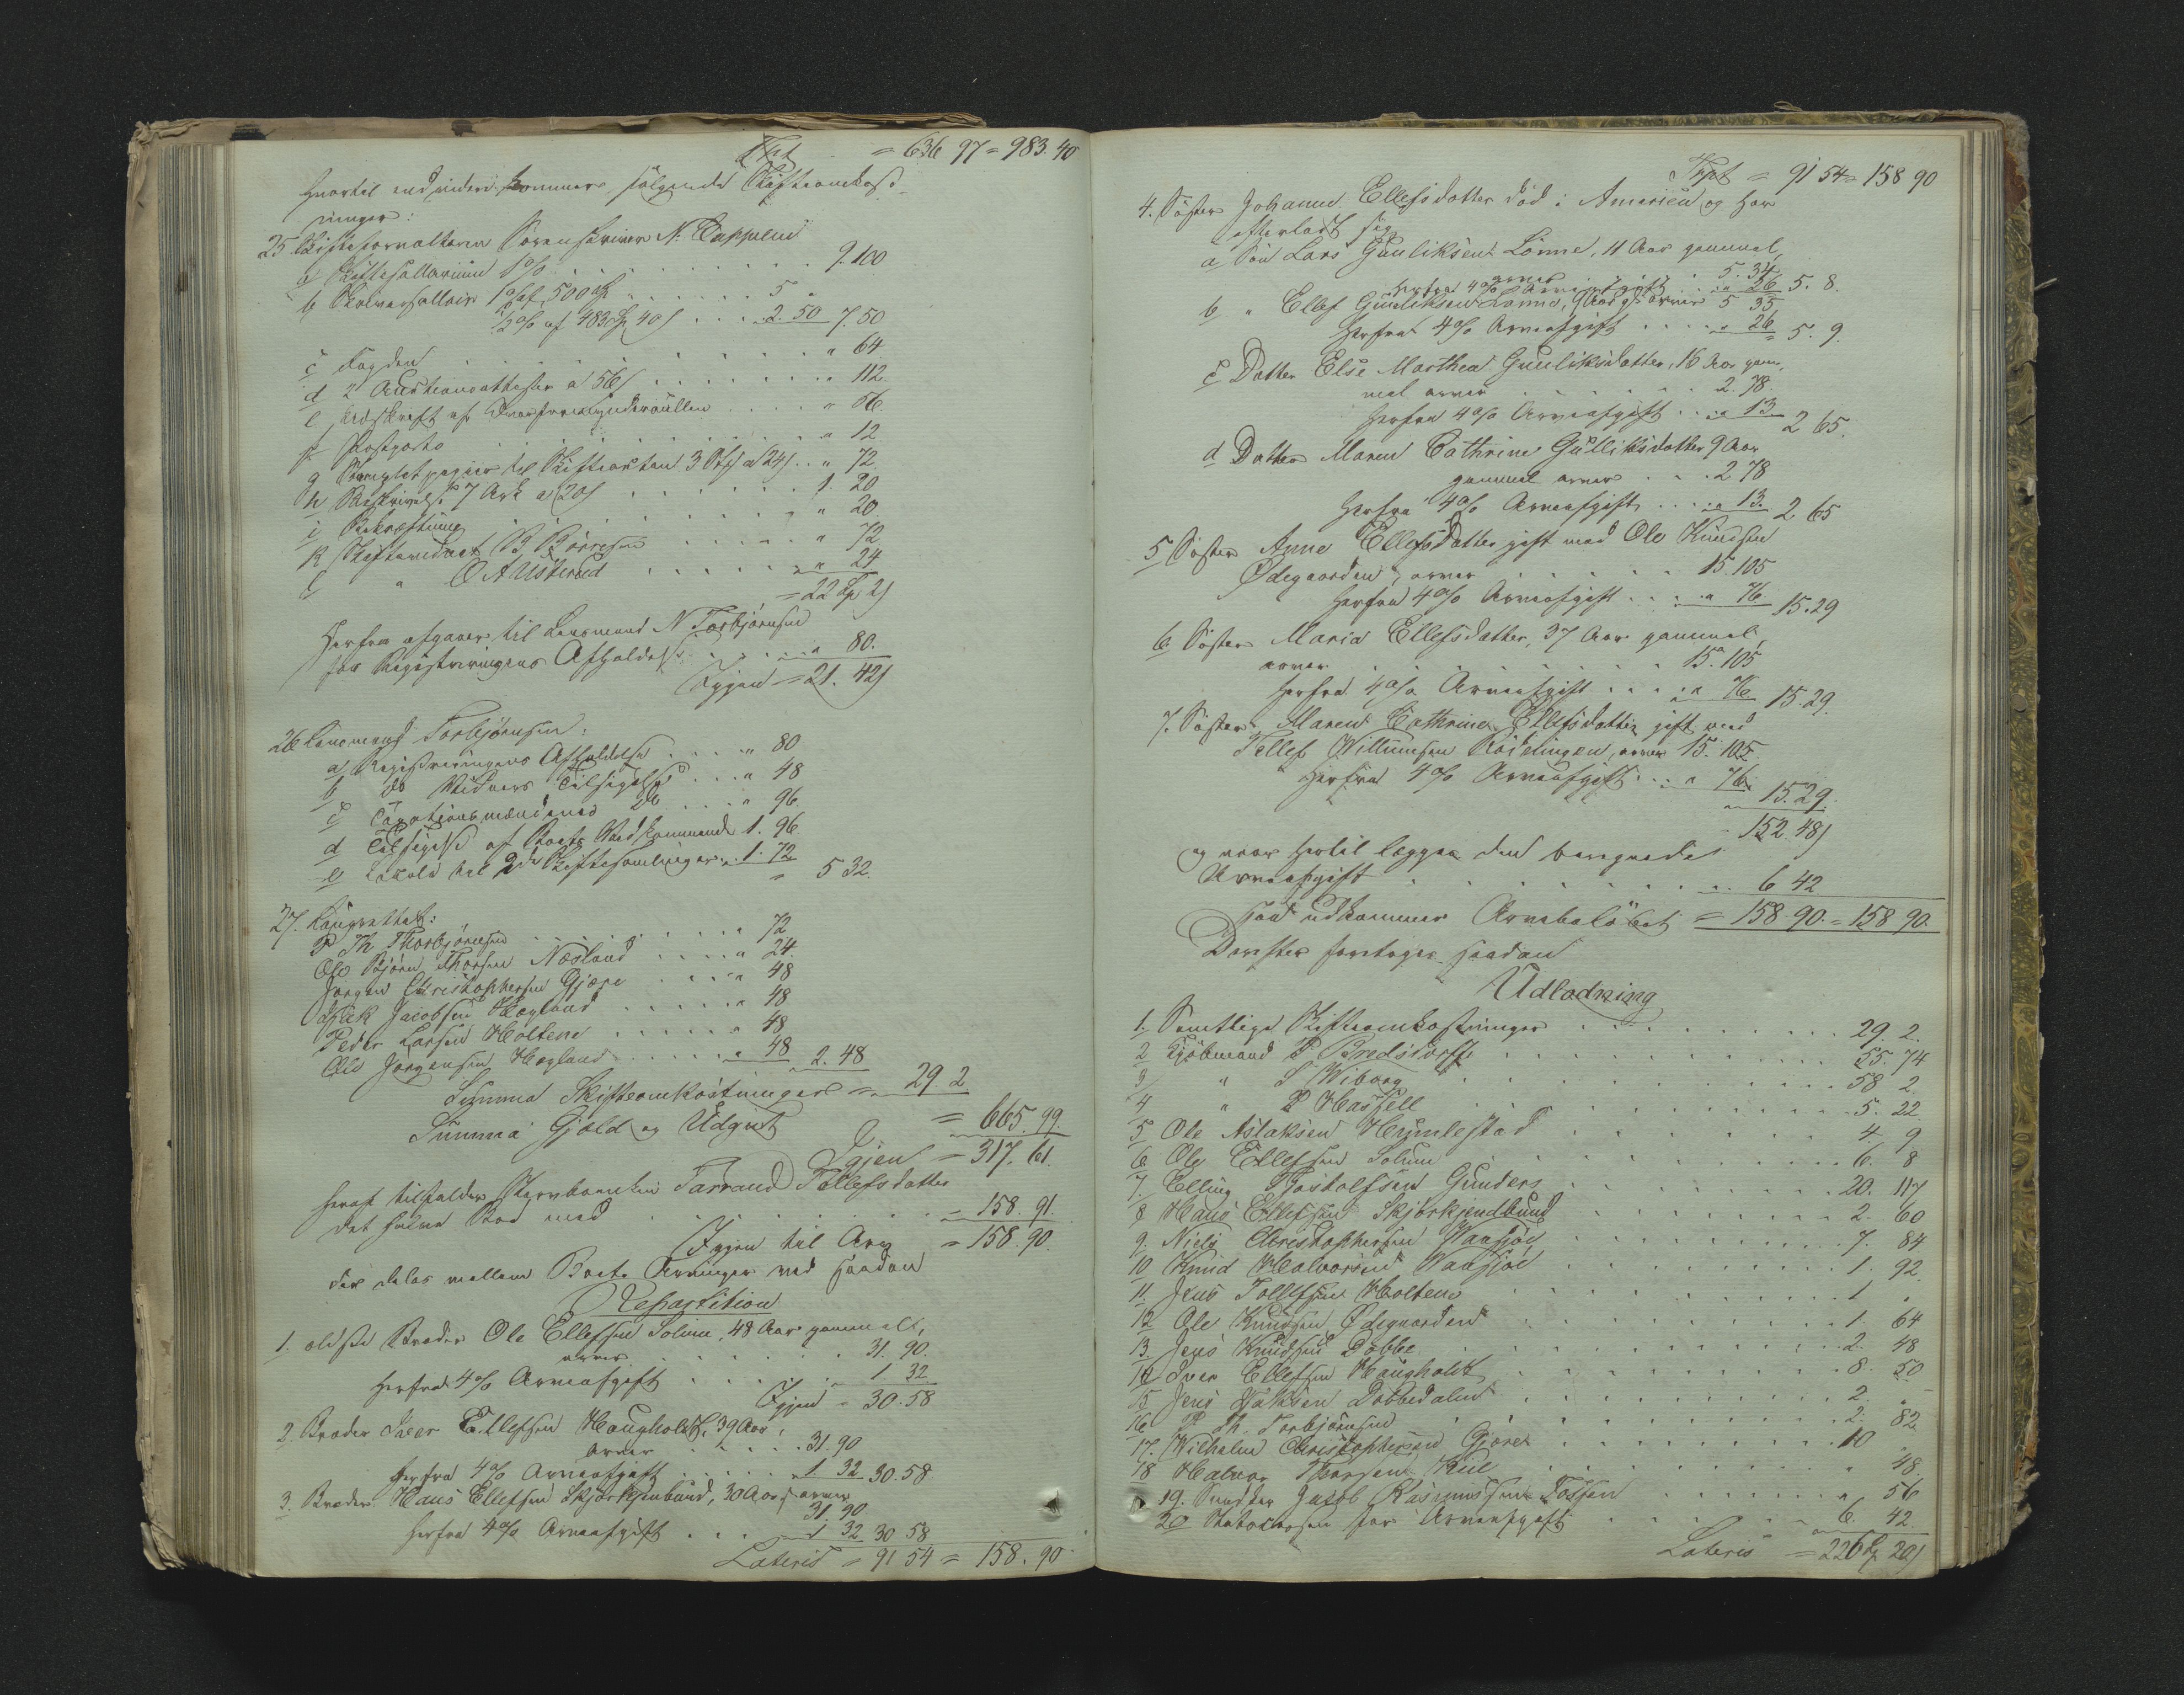 Tpt = 636 97 = 983. 40
hvortil end videre kommer følgende Skifteomkost-
ninger:
25. Skifteforvalteren Sorenskriver N. Cappelen
a Skiftesallarium 1 % . . . 9. 100
b Skriversallair 1 % af 500 Sp . . . 5 "
1/2 % af 483 Sp 40 s . . . 2. 50 7. 50
c Fogden . . . " 64
d 2 Auctionsattester a 56 s . . . " 112.
e Udskrift af . . . " 56.
f Postporto . . . " 12
g Stemplet papiir til Skifteacten 3 a 24 s . . " 72.
h Beskrivelse 7 Ark a 20 s . . . 1. 20
i Bekræftning . . . " 20.
k Skiftevidnet B Börresen . . . " 72
l " O A Usterud . . . " 24
= 22 Sp 2 s
Herfra afgaaer til Lensmand N Torbjörnsen
for Registreringens Afholdelse . . . " 80.
Igjen = 21. 42 s
26 Lensmand Torbjörnsen:
a Registreringens Afholdelse . . . " 80
b do Vidners Tilsigelse . . . " 48
c Taxationsmændenes do . . . " 96.
d Tilsigelse af Boets Vedkommende 1. 96.
e Lokale til 2de Skiftesamlinger . . 1. 72
= 5 32.
27. Laugrettet:
P Th Thorbjörnsen . . . " 72
Ole Björn Thorsen Næsland . . . " 24.
Jörgen Christophersen Gjære . . . " 48
Jacobsen Hægland . . . " 48
Peder Larsen Holtene . . . " 48
Ole Jörgensen Hægland . . . " 48 2. 48
Summa Skifteomkostninger = 29. 2.
Summa Gjeld og Udgivt = 665. 99.
Igjen = 317. 61.
heraf tilfalder Sterboenken Tarrand Tellefsdatter
det halve Bo med . . . = 158. 91.
Igjen til Arv = 158. 90.
der deles mellem Boets Arvinger ved saadan
Repartition
1. ældste Broder Ole Ellefsen Solum, 48 Aar gammel,
arver . . . 31. 90.
Herfra 4 % Arveafgift . . . 1 32
Igjen = 30. 58
2. Broder Iver Ellefsen Haugholdt, 39 Aar,
arver . . . 31. 90
Herfra 4 % Arveafgift . . . 1. 32 30. 58.
3. Broder Hans Ellefsen Skjörkjenbund, 30 Aar, arver
31. 90
Herfra 4 % Arveafgift . . . 1 32 30 58
Lateris = 91 54 = 158. 90
Tpt = 91 54 = 158 90
4. Söster Johanne Ellefsdatter död i Amerika og har
efterladt sig
a Sön Lars Gunliksen Lönne, 11 Aar gammel,
arver . . . 5. 34
Herfra 4 % Arveafgift . . . " 26 5. 8.
b " Ellef Gunliksen Lönne, 9 Aar gl arver 5 35
Herfra 4 % Arveafgift . . . " 26 5. 9.
c Datter Else Marthea Gunliksdatter, 16 Aar gam-
mel arver . . . 2. 78.
Herfra 4 % Arveafgift . . . " 13 2 65.
d Datter Maren Cathrine Gulliksdatter 9 Aar
gammel arver . . . 2 78
Herfra 4 % Arveafgift . . . " 13. 2 65
5 Söster Anne Ellefsdatter gift med Ole Knudsen
Ødegaarden, arver . . . 15. 105
Herfra 4 % Arveafgift . . . " 76. 15. 29
6. Söster Maria Ellefsdatter, 37 Aar gammel,
arver . . . 15. 105
Herfra 4 % Arveafgift . . . " 76 15. 29.
7. Söster Maren Cathrine Ellefsdatter gift med
Tellef Willumsen Rödningen, arver 15. 105
Herfra 4 % Arveafgift . . . " 76. 15. 29.
152. 48 s
og naar hertil lægges den beregnede
Arveafgift . . . 6 42
saa udkommer Arvebelöbet = 158. 90. = 158 90.
Derefter foretages saadan
Udlodning
1. Samtlige Skifteomkostninger . . . 29. 2.
2 Kjöbmand P Bredsdorff . . . 55. 74
3 " S Wiborg . . . 58 2
4 " P Hassell . . . 5. 22
5 Ole Aslaksen Humlestad . . . 4 9
6. Ole Ellefsen Solum . . . 6. 8
7. Elling Torstolfsen Gunders . . . 20. 117
8 Hans Ellefsen Skjörkjendbund . . . 2. 60
9. Niels Christophersen Waasjöe . . . 7. 84
10 Knud Halvorsen Waasjöe . . . 1. 92
11. Jens Tollefsen Holtene . . . 1 "
12 Ole Knudsen Ødegaarden . . . 1. 64
13. Jens Knudsen Dobbe . . . 2. 48
14 Iver Ellefsen Haugholdt . . . 8. 50
15 Jens Isaksen Dobbedalen . . . 2. "
16 P Th. Torbjörnsen . . . 2. 82
17. Wilhelm Christophersen Gjære . . . 10 "
18 Halvor Thorsen Kiil . . . " 48.
19. Jacob Rasmussen Fossen . . . " 56
20 Statskassen for Arveafgift . . . 6. 42.
Lateris = 226 Sp 20 s